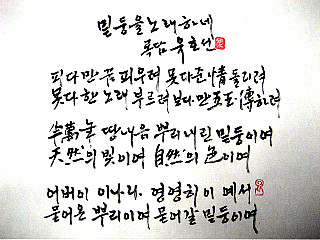 밑둥을 노래하네
목담 유호선
피다 만 꿈 피우려 못다 준 情 들려
못다한 노래 부르려 보다 만 王王 傳하려
半萬年 땅 나음 뿌리내린 밑둥이여
天然의 빛이여 自然의 色이여
어버이 이나니 영영히 이 예서
묻어온 뿌리이여 묻어갈 밑둥이여